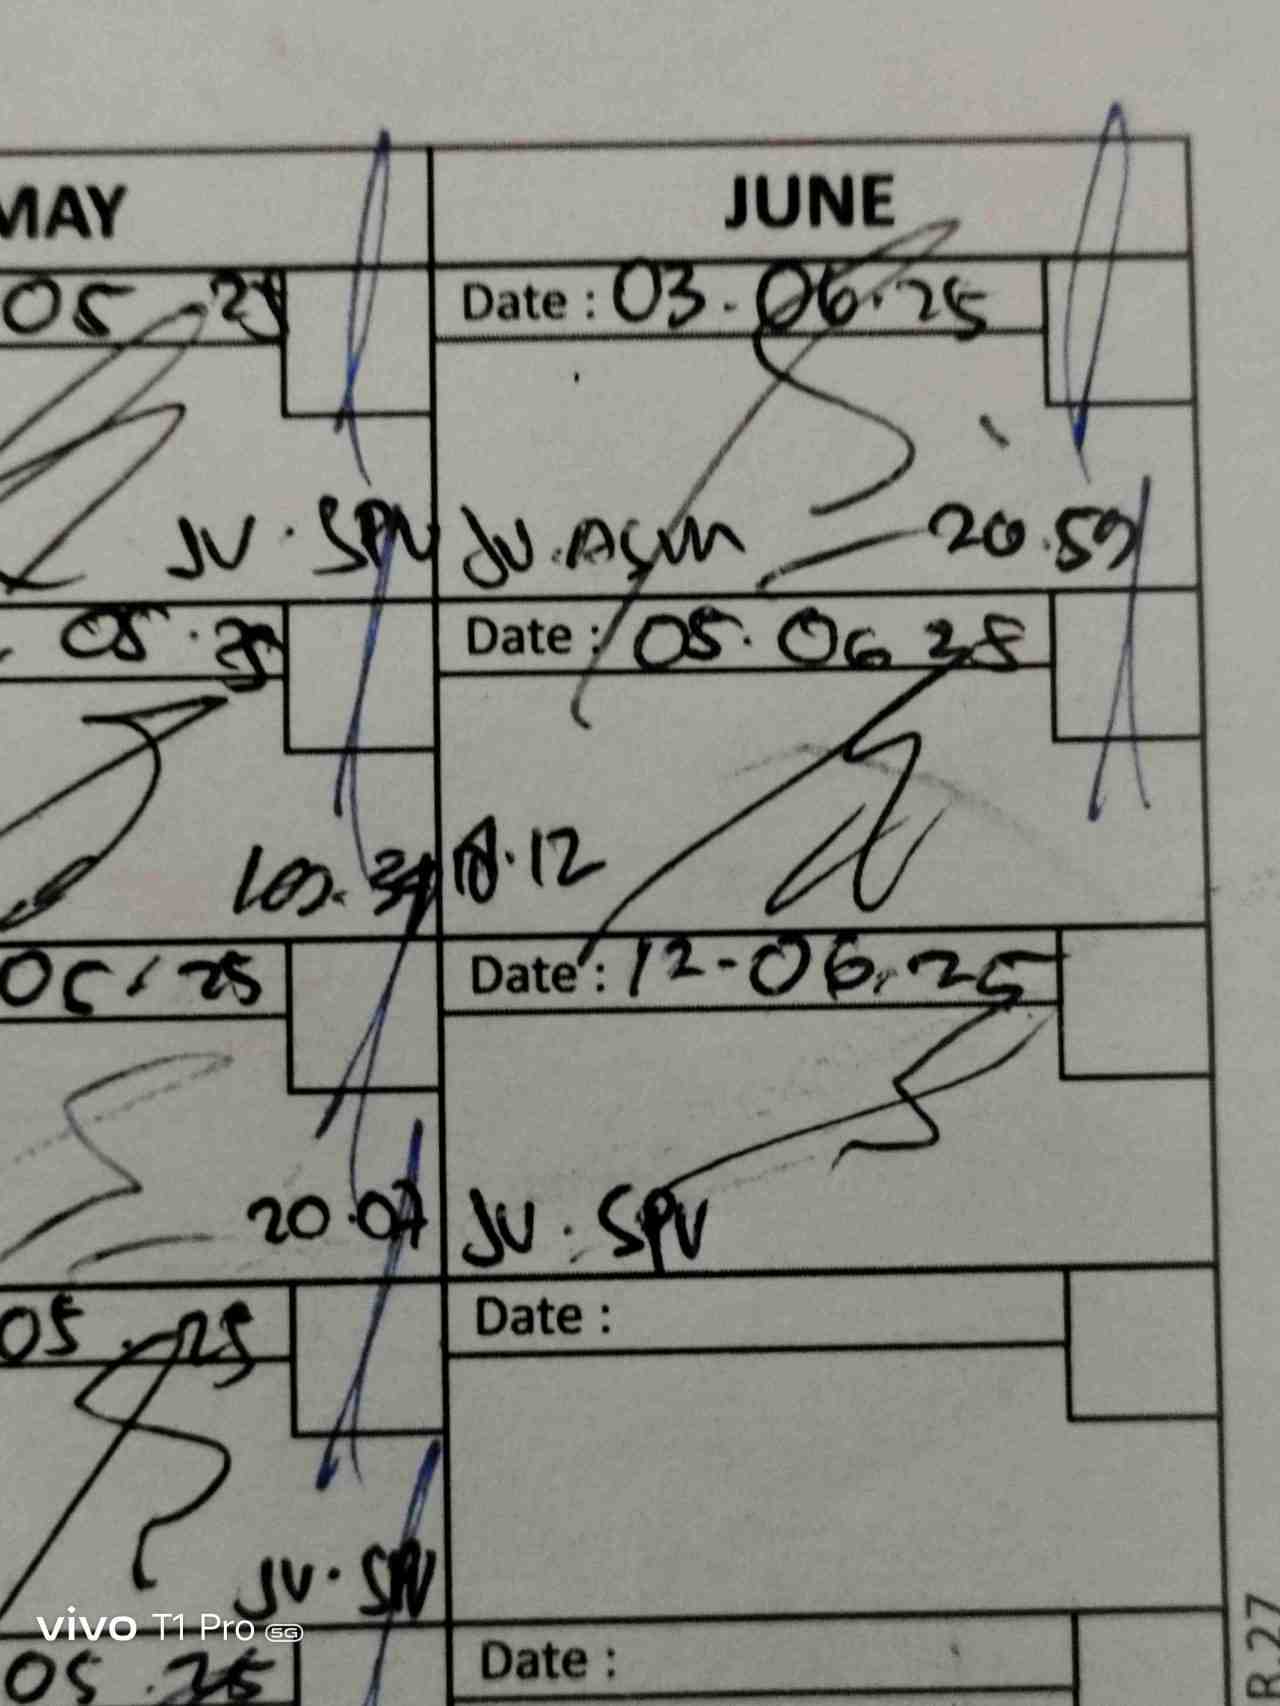 MAY
JUNE
05 . 25
Date : 03-06.25
JV . SPV
JV.ASM 20.59
05.25
Date : 05.06 25
18.12
05 . 25
Date : 12-06.25
20.07
JV . SPV
05 . 25
Date :
JV. SPV
05 . 25
Date :
R.27
vivo T1 Pro 5G